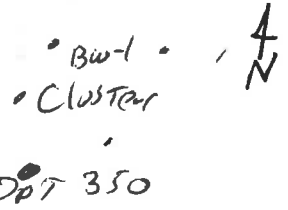 Bw-1
Cluster
Dpt 350
N